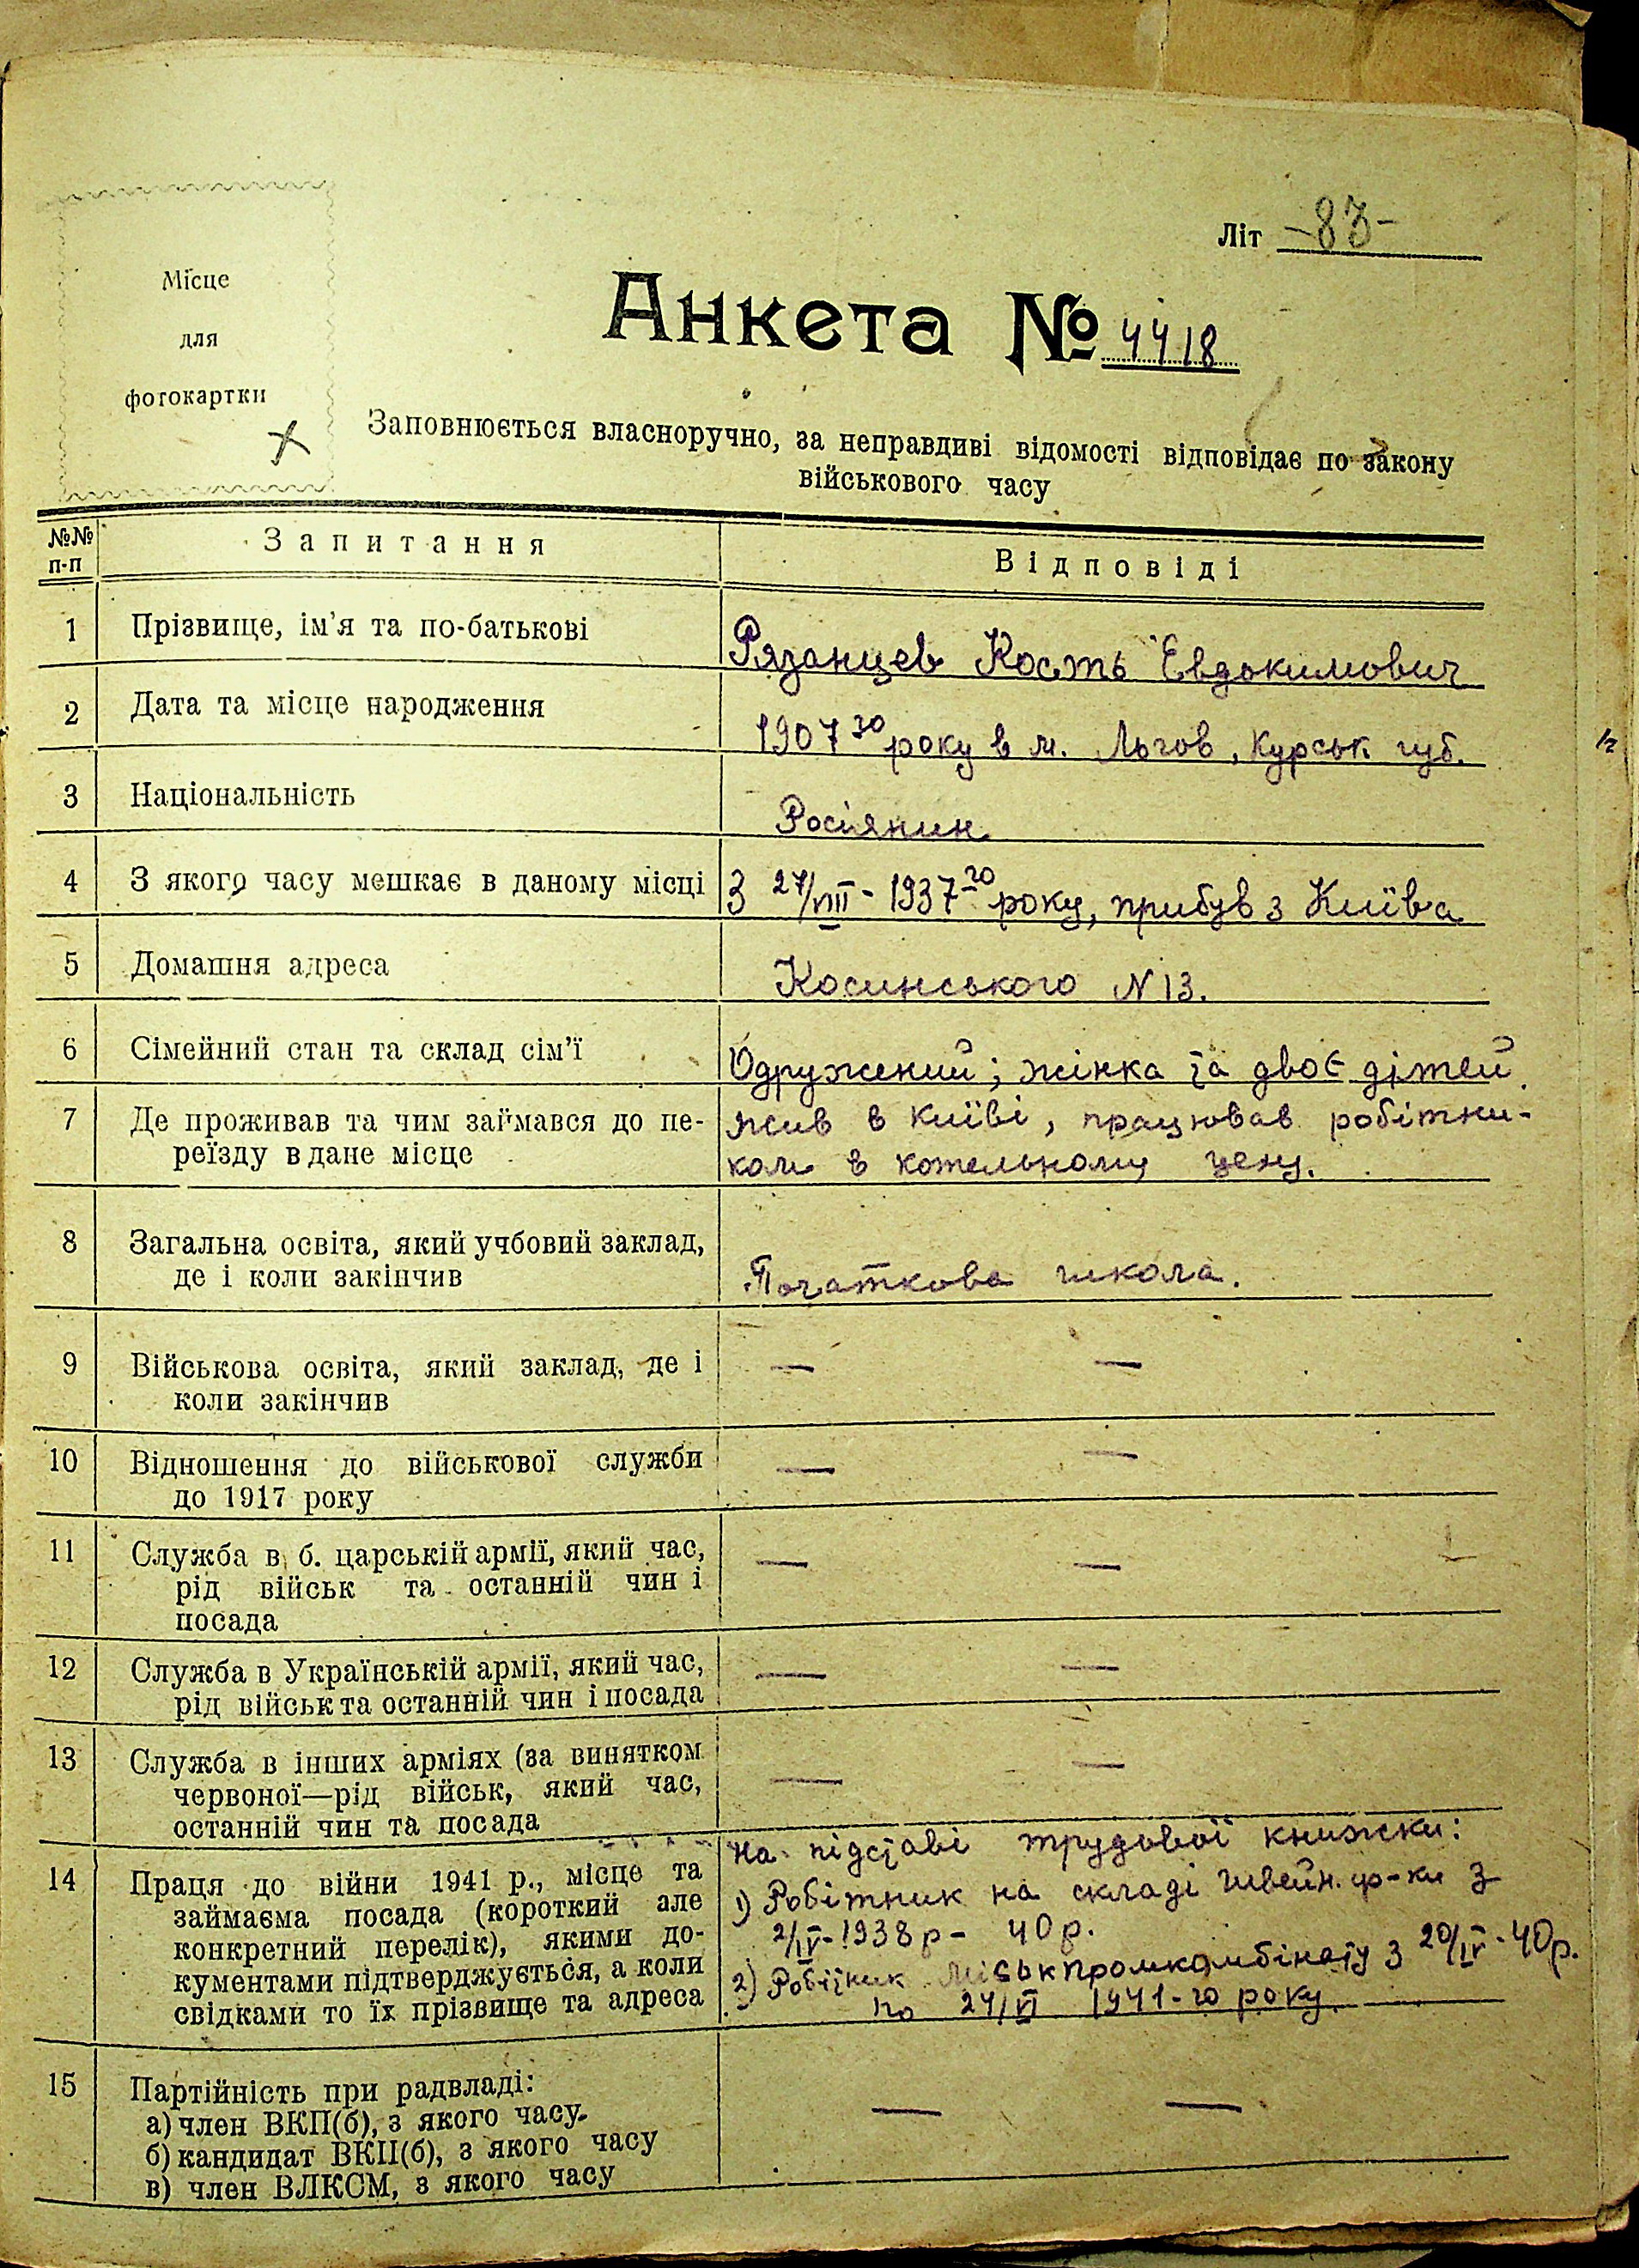 Літ -83-
Місце
для
фотокартки
Анкета № 4418
Заповнюється власноручно, за неправдиві відомості відповідає по закону
військового часу
№№
п-п
Запитання
Відповіді
1 Прізвище, ім'я та по-батькові
Рязанцев Кость Евдокимович
2 Дата та місце народження
1907 го року в м. Льгов, Курськ губ.
3 Національність
Росіянин
4 З якого часу мешкає в даному місці
З 27/VIII - 1937-го року, прибув з Київа
5 Домашня адреса
Косинського N 13.
6 Сімейний стан та склад сім'ї
Одружений; жінка та двоє дітей.
7 Де проживав та чим займався до пе-
реїзду в дане місце
жив в Київі, працював робітни-
ком в котельному цеху.
8 Загальна освіта, який учбовий заклад,
де і коли закінчив
Початкова школа.
9 Військова освіта, який заклад, де і
коли закінчив
— —
10 Відношення до військової служби
до 1917 року
— —
11 Служба в б. царській армії, який час,
рід військ та останній чин і
посада
— —
12 Служба в Українській армії, який час,
рід військ та останній чин і посада
— —
13 Служба в інших арміях (за винятком
червоної—рід військ, який час,
останній чин та посада
— —
14 Праця до війни 1941 р., місце та
займаєма посада (короткий але
конкретний перелік), якими до-
кументами підтверджується, а коли
свідками то їх прізвище та адреса
На підставі трудової книжки:
1) Робітник на складі швейн. ф-ки з
2/IV-1938р - 40р.
2) Робітник Міськпромкомбінату з 20/IV-40р.
по 24/VI 1941-го року.
15 Партійність при радвладі:
а) член ВКП(б), з якого часу.
б) кандидат ВКП(б), з якого часу
в) член ВЛКСМ, з якого часу
— —